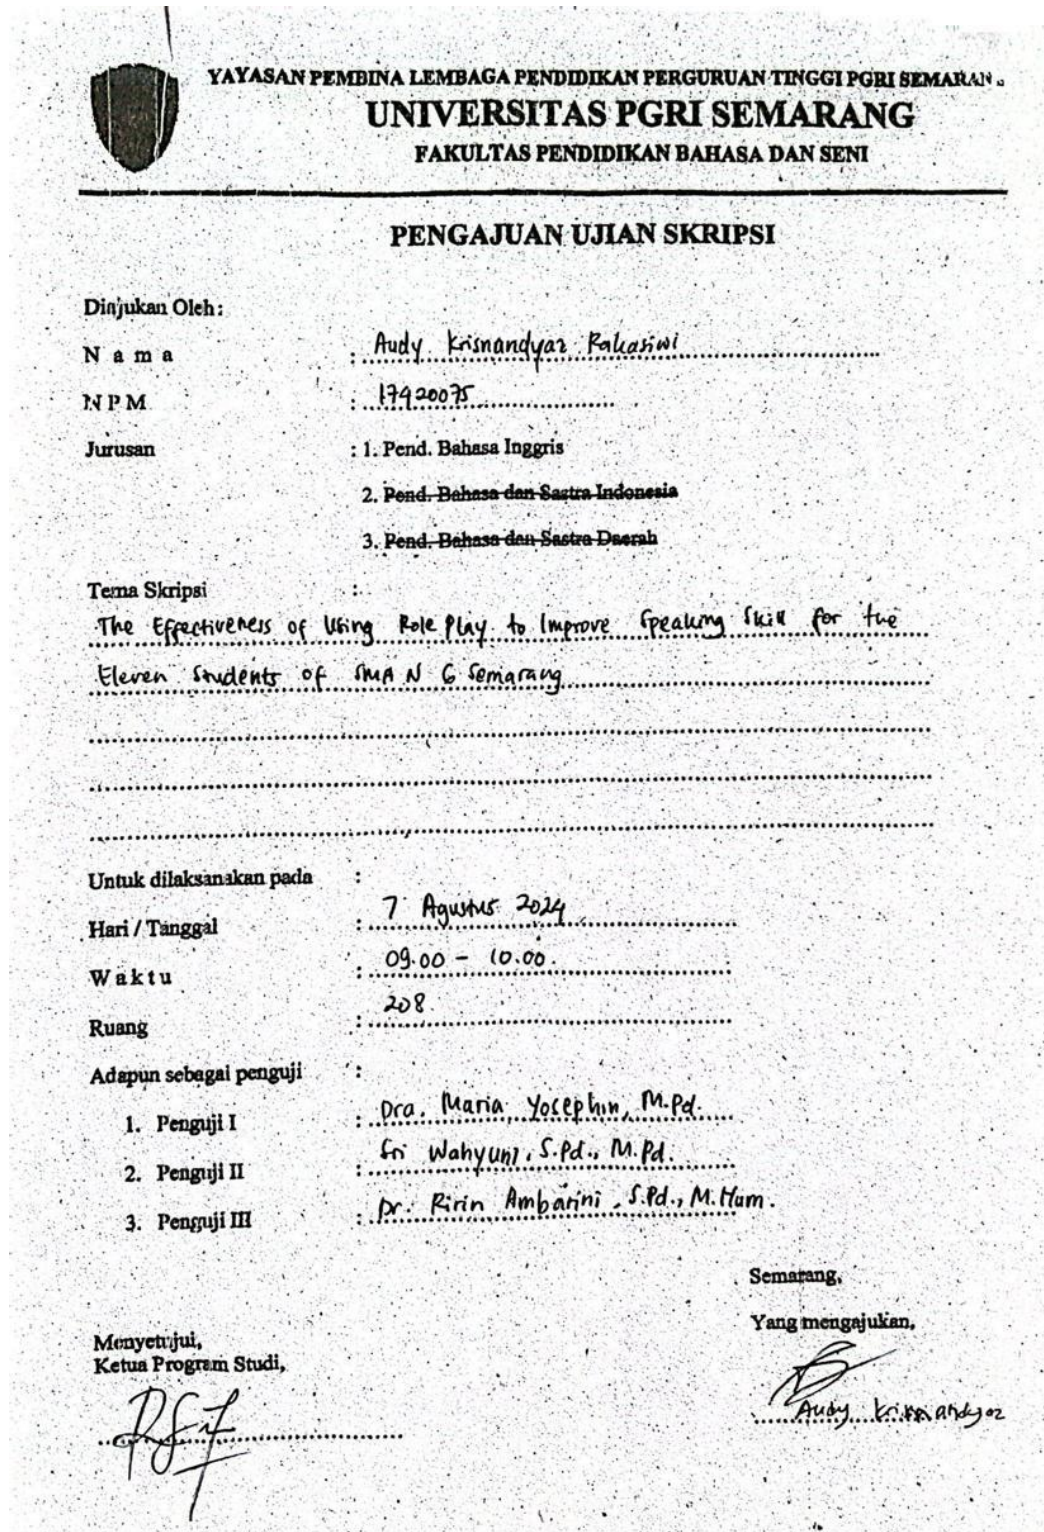 YAYASAN PEMBINA LEMBAGA PENDIDIKAN PERGURUAN TINGGI PGRI SEMARANG
UNIVERSITAS PGRI SEMARANG
FAKULTAS PENDIDIKAN BAHASA DAN SENI
PENGAJUAN UJIAN SKRIPSI
Diajukan Oleh :
N a m a : Audy Krisnandyar Rakasiwi
NPM : 17420075
Jurusan : 1. Pend. Bahasa Inggris
2. Pend. Bahasa dan Sastra Indonesia
3. Pend. Bahasa dan Sastra Daerah
Tema Skripsi :
The Effectiveness of Using Role Play to Improve Speaking Skill for the
Eleven Students of SMA N 6 Semarang
Untuk dilaksanakan pada :
Hari / Tanggal : 7 Agustus 2024
W a k t u : 09.00 - 10.00.
Ruang : 208.
Adapun sebagai penguji :
1. Penguji I : Dra. Maria Yosephin, M.Pd.
2. Penguji II : Sri Wahyuni, S.Pd., M.Pd.
3. Penguji III : Dr. Ririn Ambarini, S.Pd., M.Hum.
Semarang,
Yang mengajukan,
Menyetujui,
Ketua Program Studi,
Audy Krisnandyar